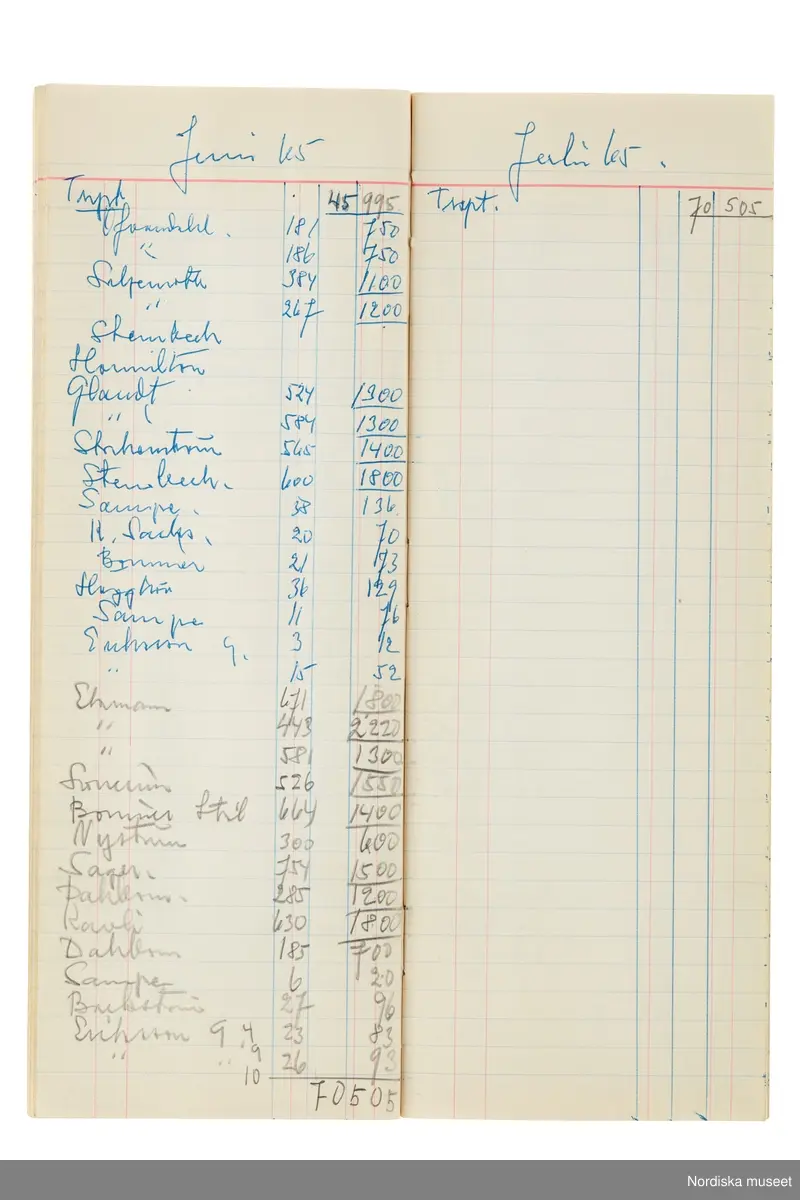 Juni 65
Trspt. 45 995
181 750
" 186 750
384 1100
" 267 1200
Stenbeck
Hamilton
Glandt 524 1300
" 584 1300
565 1400
Stenbeck. 600 1800
Sampe. 38 136
H. Sachs. 20 70
Bonnier 21 73
Häggström 36 129
Sampe 11 76
Eriksson G. 3 12
" 15 52
Ehrman 671 1800
" 443 2220
" 581 1300
526 1550
Bonnier 664 1400
Nyström 300 600
Sager. 754 1500
Dahlbom. 285 1200
630 1800
Dahlbom 185 700
Sampe 6 20
Backström 27 96
Eriksson G 4 23 83
" " 9 26 93
10
70505
Juli 65.
Trspt. 70 505
Nordiska museet